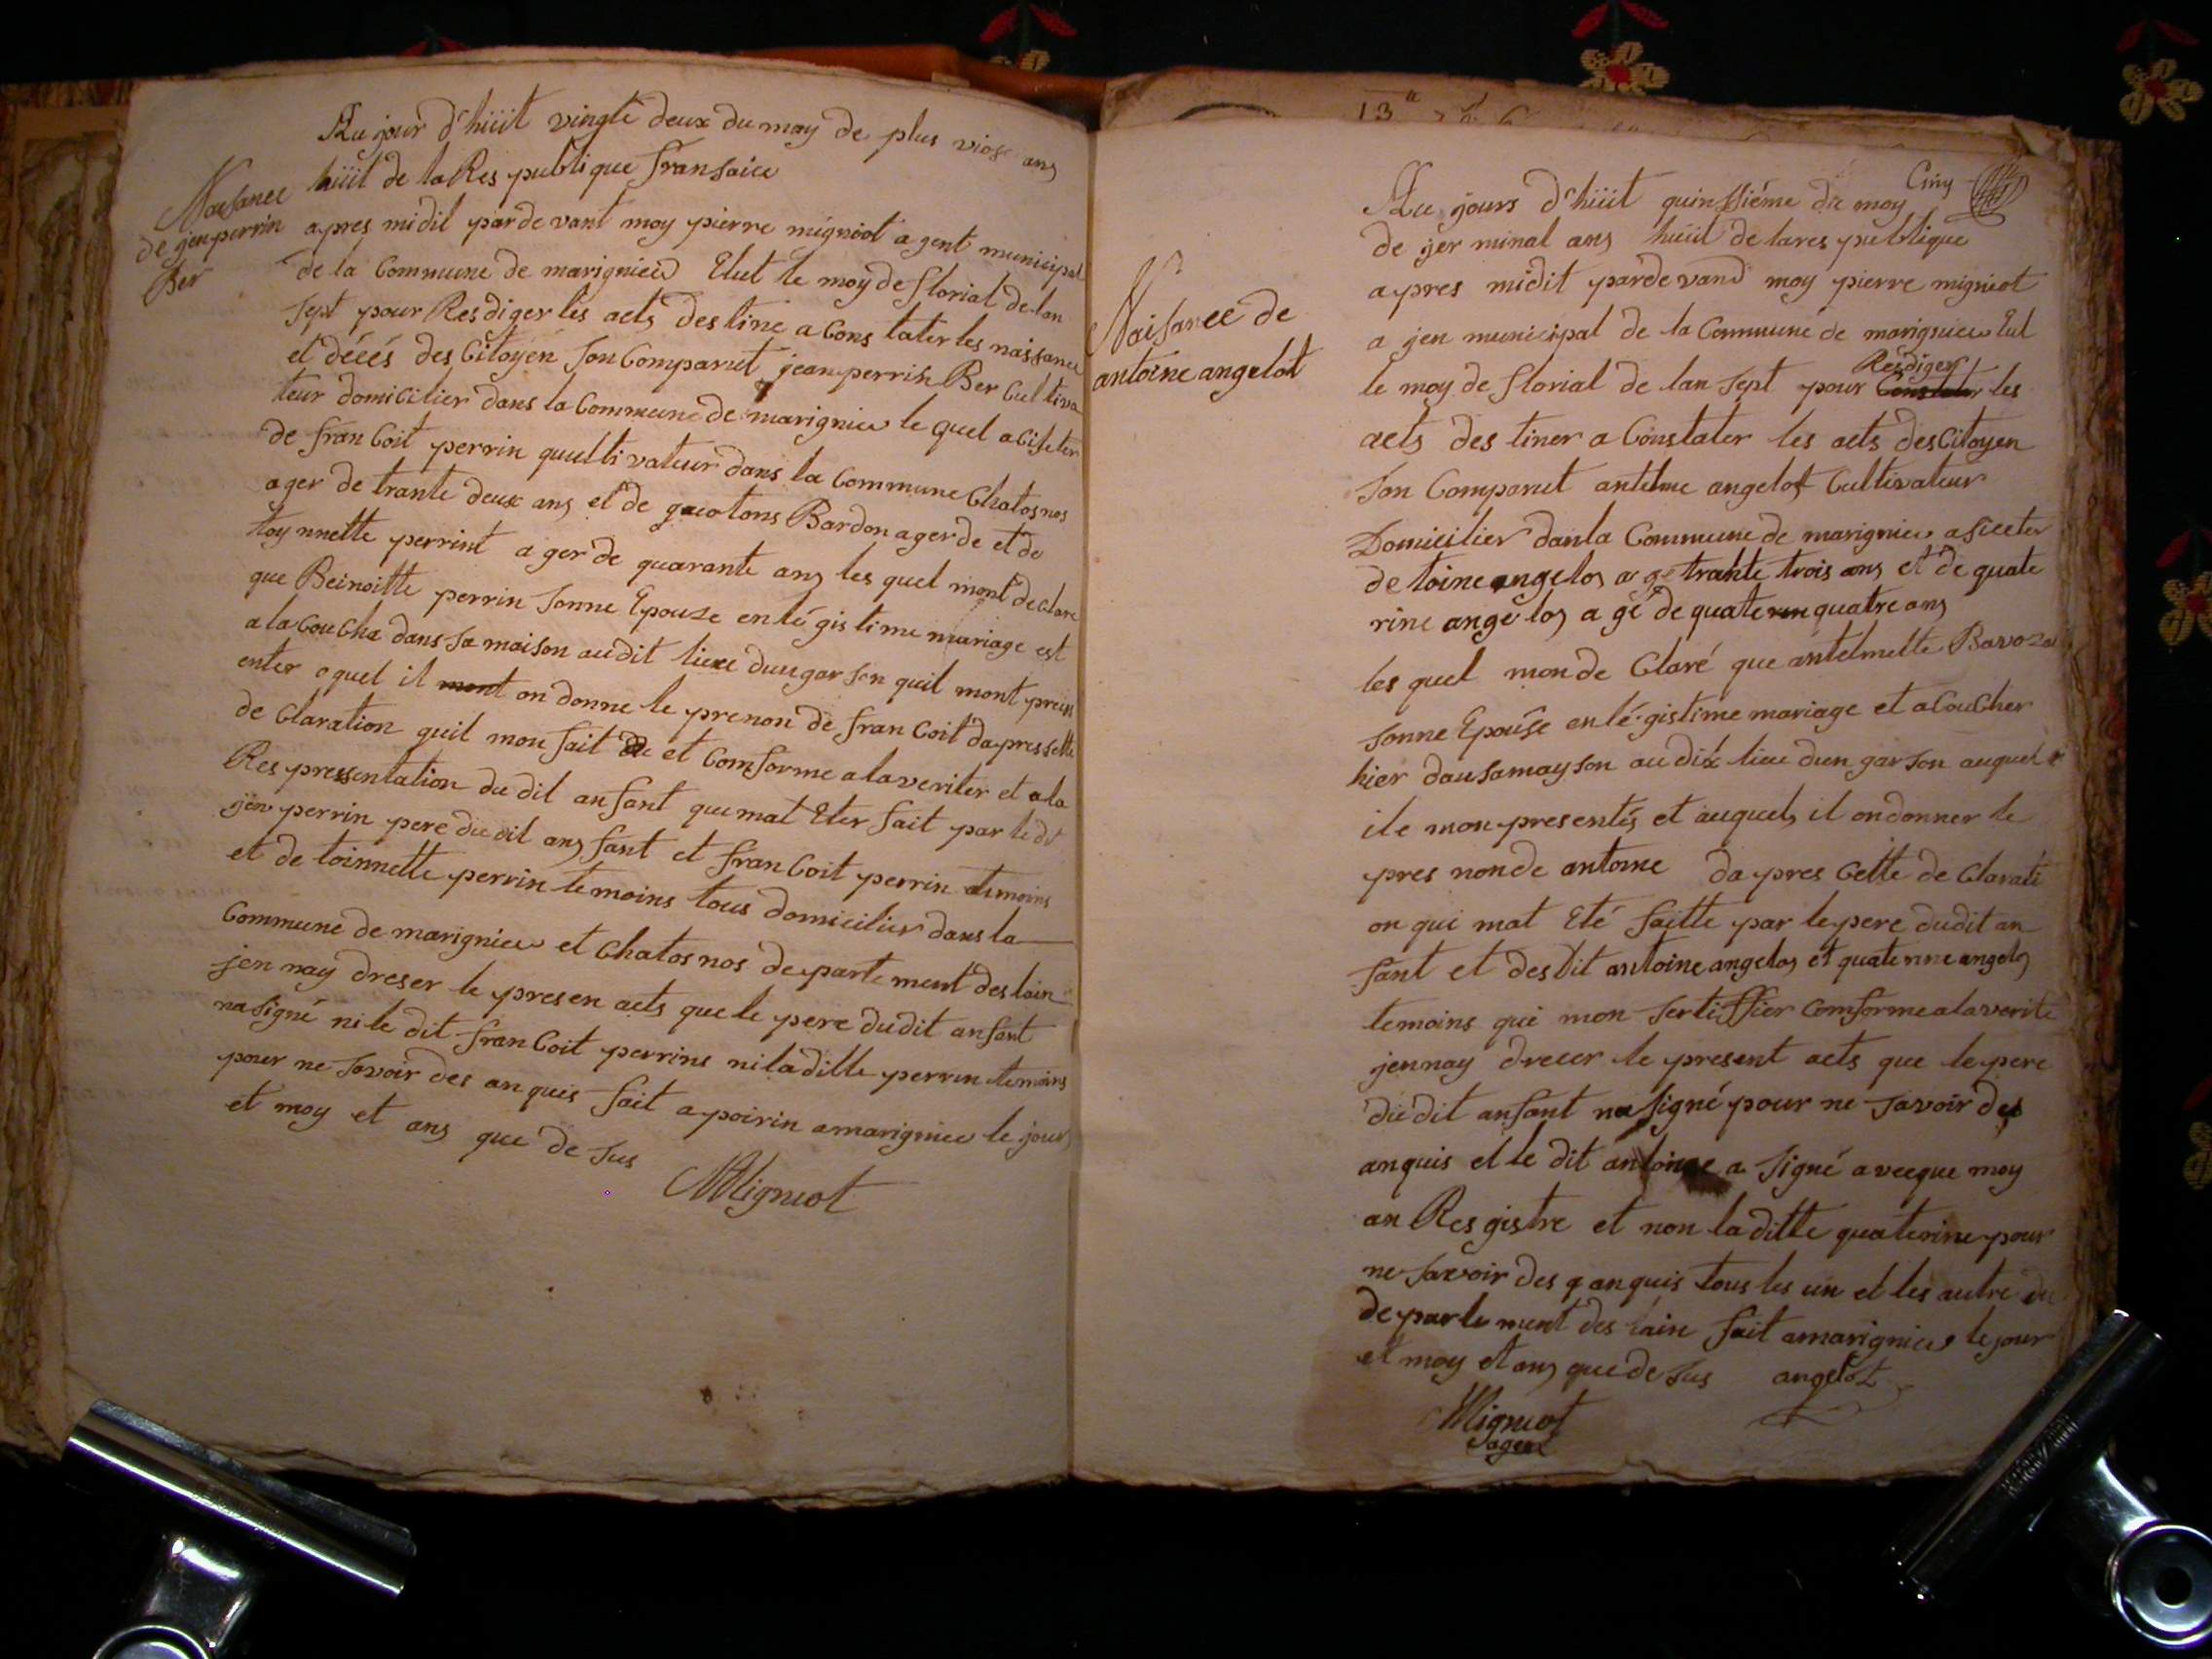 Au jour d'hüit vingte deux du moy de plus viose ans
hüit de la Res publique fransaice
Naisance
de jen perrin
Ber
apres midit par de vant moy pierre migniot agent municipal
de la Commune de marignieu Elut le moy de florial de lan
sept pour Resdiger les acts destine a Cons tater les naissance
et décés des Citoyén Son Comparut jean perrin Ber Cultiva
teur domiCilier dans la Commune de marignieu le quel aCisCter
de fran Coit perrin quultivateur dans la Commune Chatosnos
ager de trante deux ans et de Bardon ager de et de
toynnette perrint ager de quarante ans les quel mont declare
que Beinoitte perrin Sonne Epouse en légistime mariage est
a la CouCha dans Sa maison audit lieux dungarson quil mont presn
enter oquel il mont on donne le prenon de fran Coit dapressette
de Claration quil mon fait et Comforme alaveriter et ala
Res pressentation du dit anfant qui mat Eter fait par le dit
jen perrin pere du dit ans fant et fran Coit perrin temoins
et de toinnette perrin temoins tous domicilier dans la
Commune de marignieu et Chatosnos departement deslain
jen nay dreser le presen acts que le pere dudit anfant
nasigné ni le dit fran Coit perrins ni laditte perrin temoins
pouer ne Savoir des an quis fait apoirin amarignieu le jour
et moy et ans que de sus
Migniot
13
Cinq
Au jours d'hüit quinssiéme du moy
de jer minal ans hüit de lares publique
apres midit pardevand moy pierre migniot
a jen municipal de la Commune de marignieu Elut
Resdiger
le moy de florial de lan Sept pour Constater les
acts des tiner a Constater les acts desCitoyen
Son Comparut antelme angelot Cultivateur
Domicilier danla Commune de marignieu asiccter
de toine angelos agé trante trois ans et de quate
rine angelos agé de quateren quatre ans
les quel mon de Claré que antelmette Bavozat
Sonne Epouse en légistime mariage et aCouCher
hier dansamayson au dix lieu dun garson auquel
Naisance de
antoine angelot
ile mon presentés et auquel, il on donner le
pres non de antoine dapres Cette de Clarati
on qui mat Eté faitte par le pere dudit an
fant et desdit antoine angelos et quaterine angelos
temoins qui mon Sertiffier Comforme a la verite
jennay drecer le present acts que le pere
du dit anfant na Signé pour ne Savoir des
anquis et le dit antoine a Signé a vecque moy
an Resgistre et non laditte quaterine pour
ne Savoir des q anquis tous les un et les autre du
departement des lain fait amarignieu le jour
et moy et ans que de Sus angelot
Migniot
agent